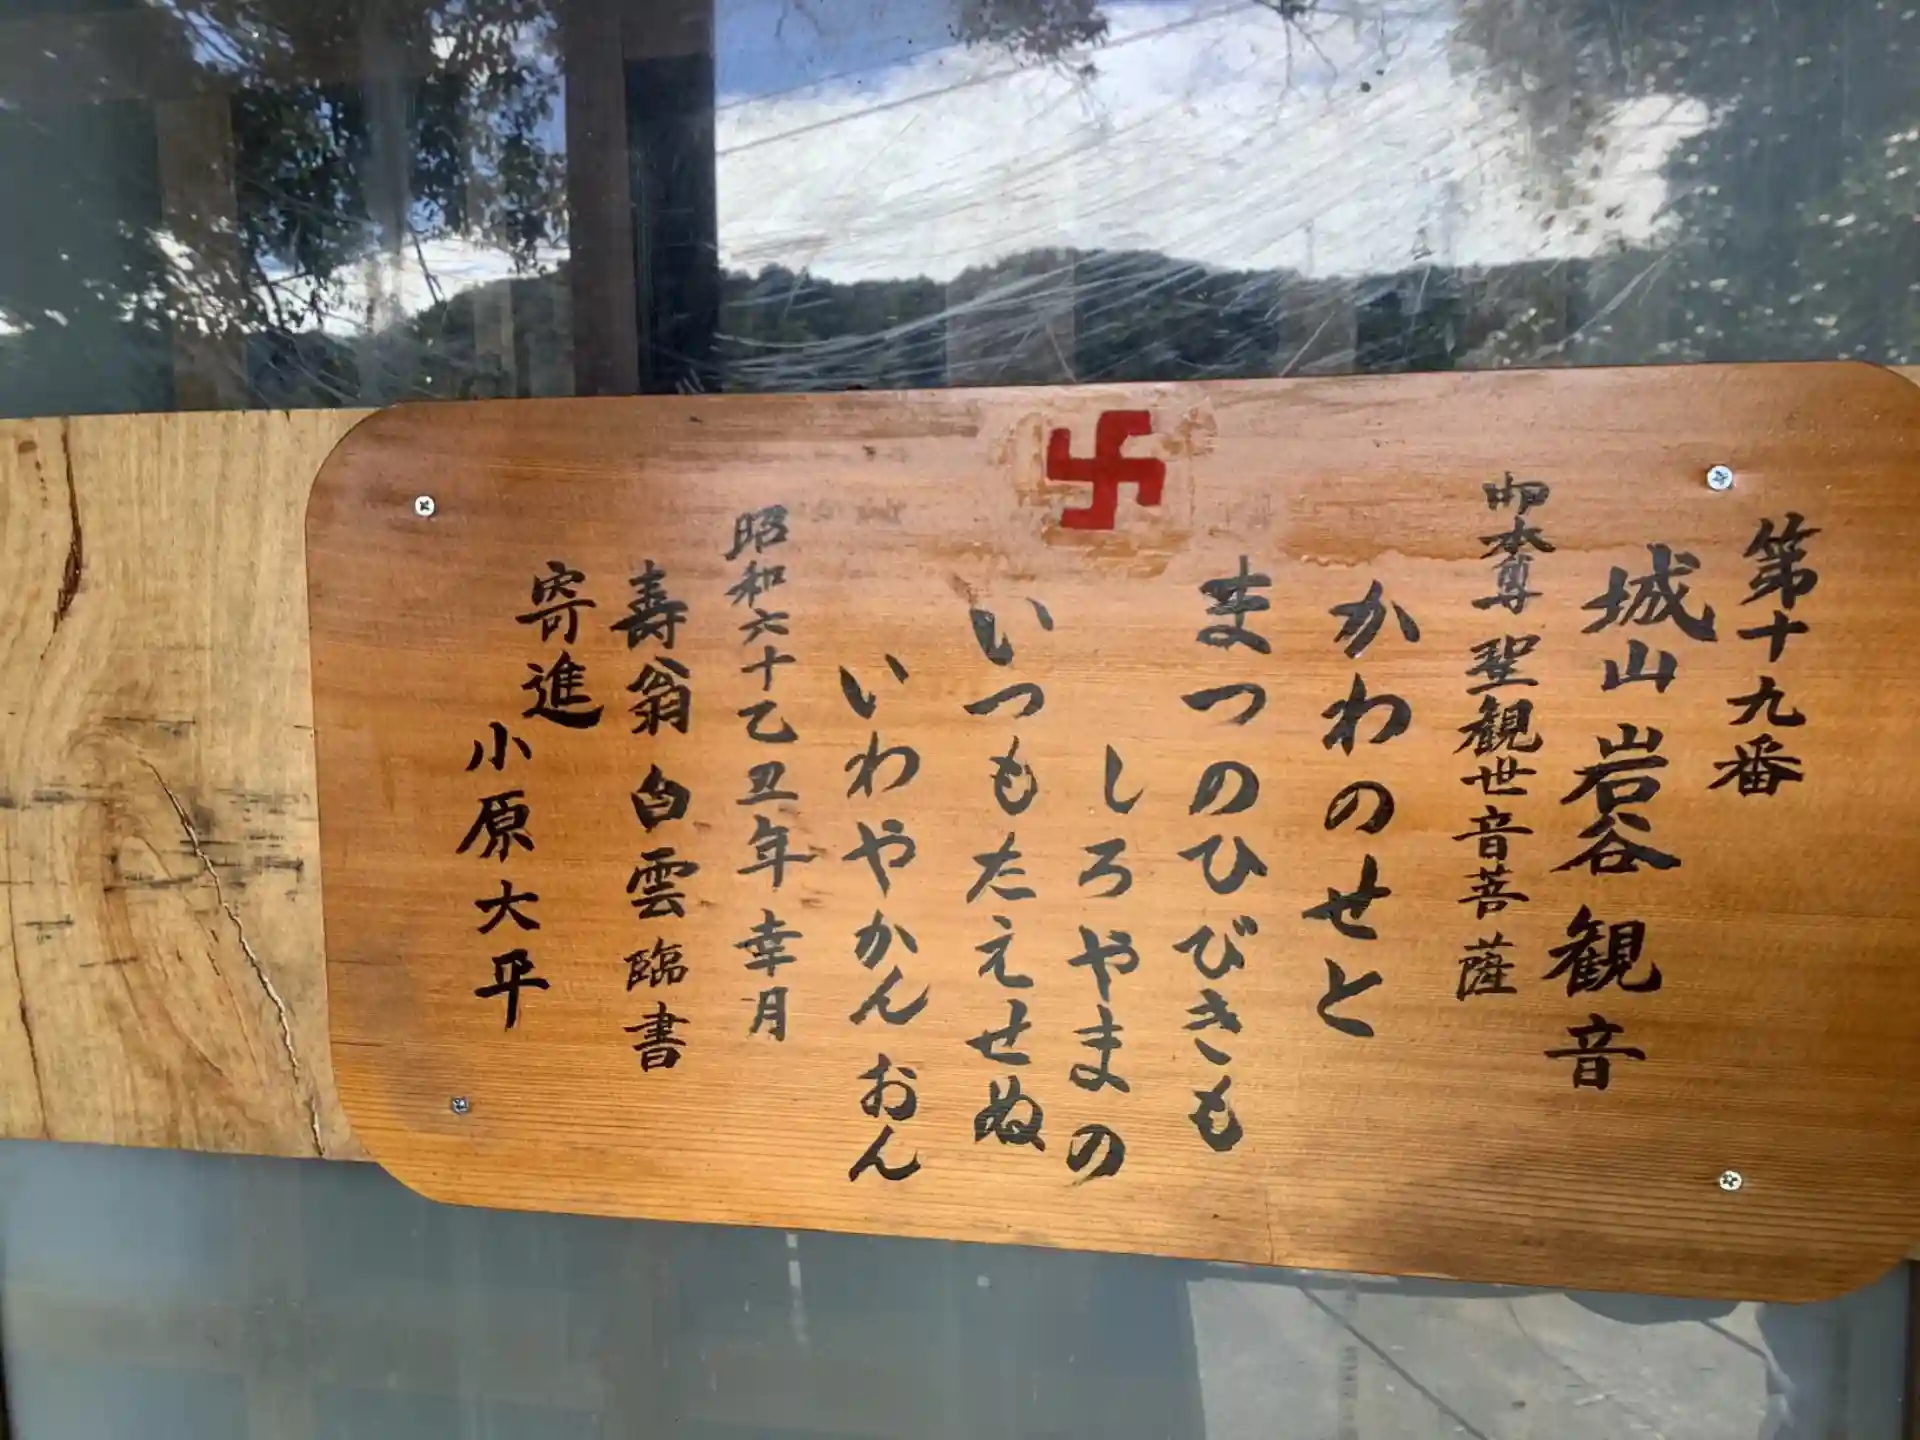 第十九番
城山岩谷観音
御本尊 聖観世音菩薩
かわのせと
まつのひびきも
しろやまの
いつもたえせぬ
いわやかんおん
昭和六十乙丑年幸月
壽翁 白雲臨書
寄進 小原大平